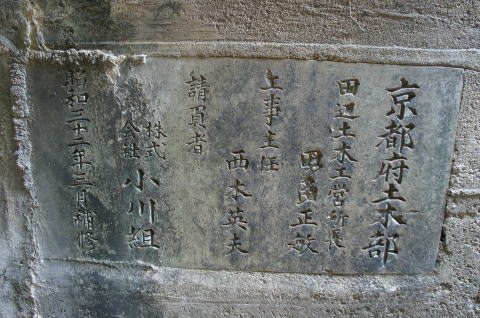 京都府土木部
田辺土木工営所長
正敏
工事主任
西本英夫
請負者
株式会社 小川組
昭和三十二年三月補修